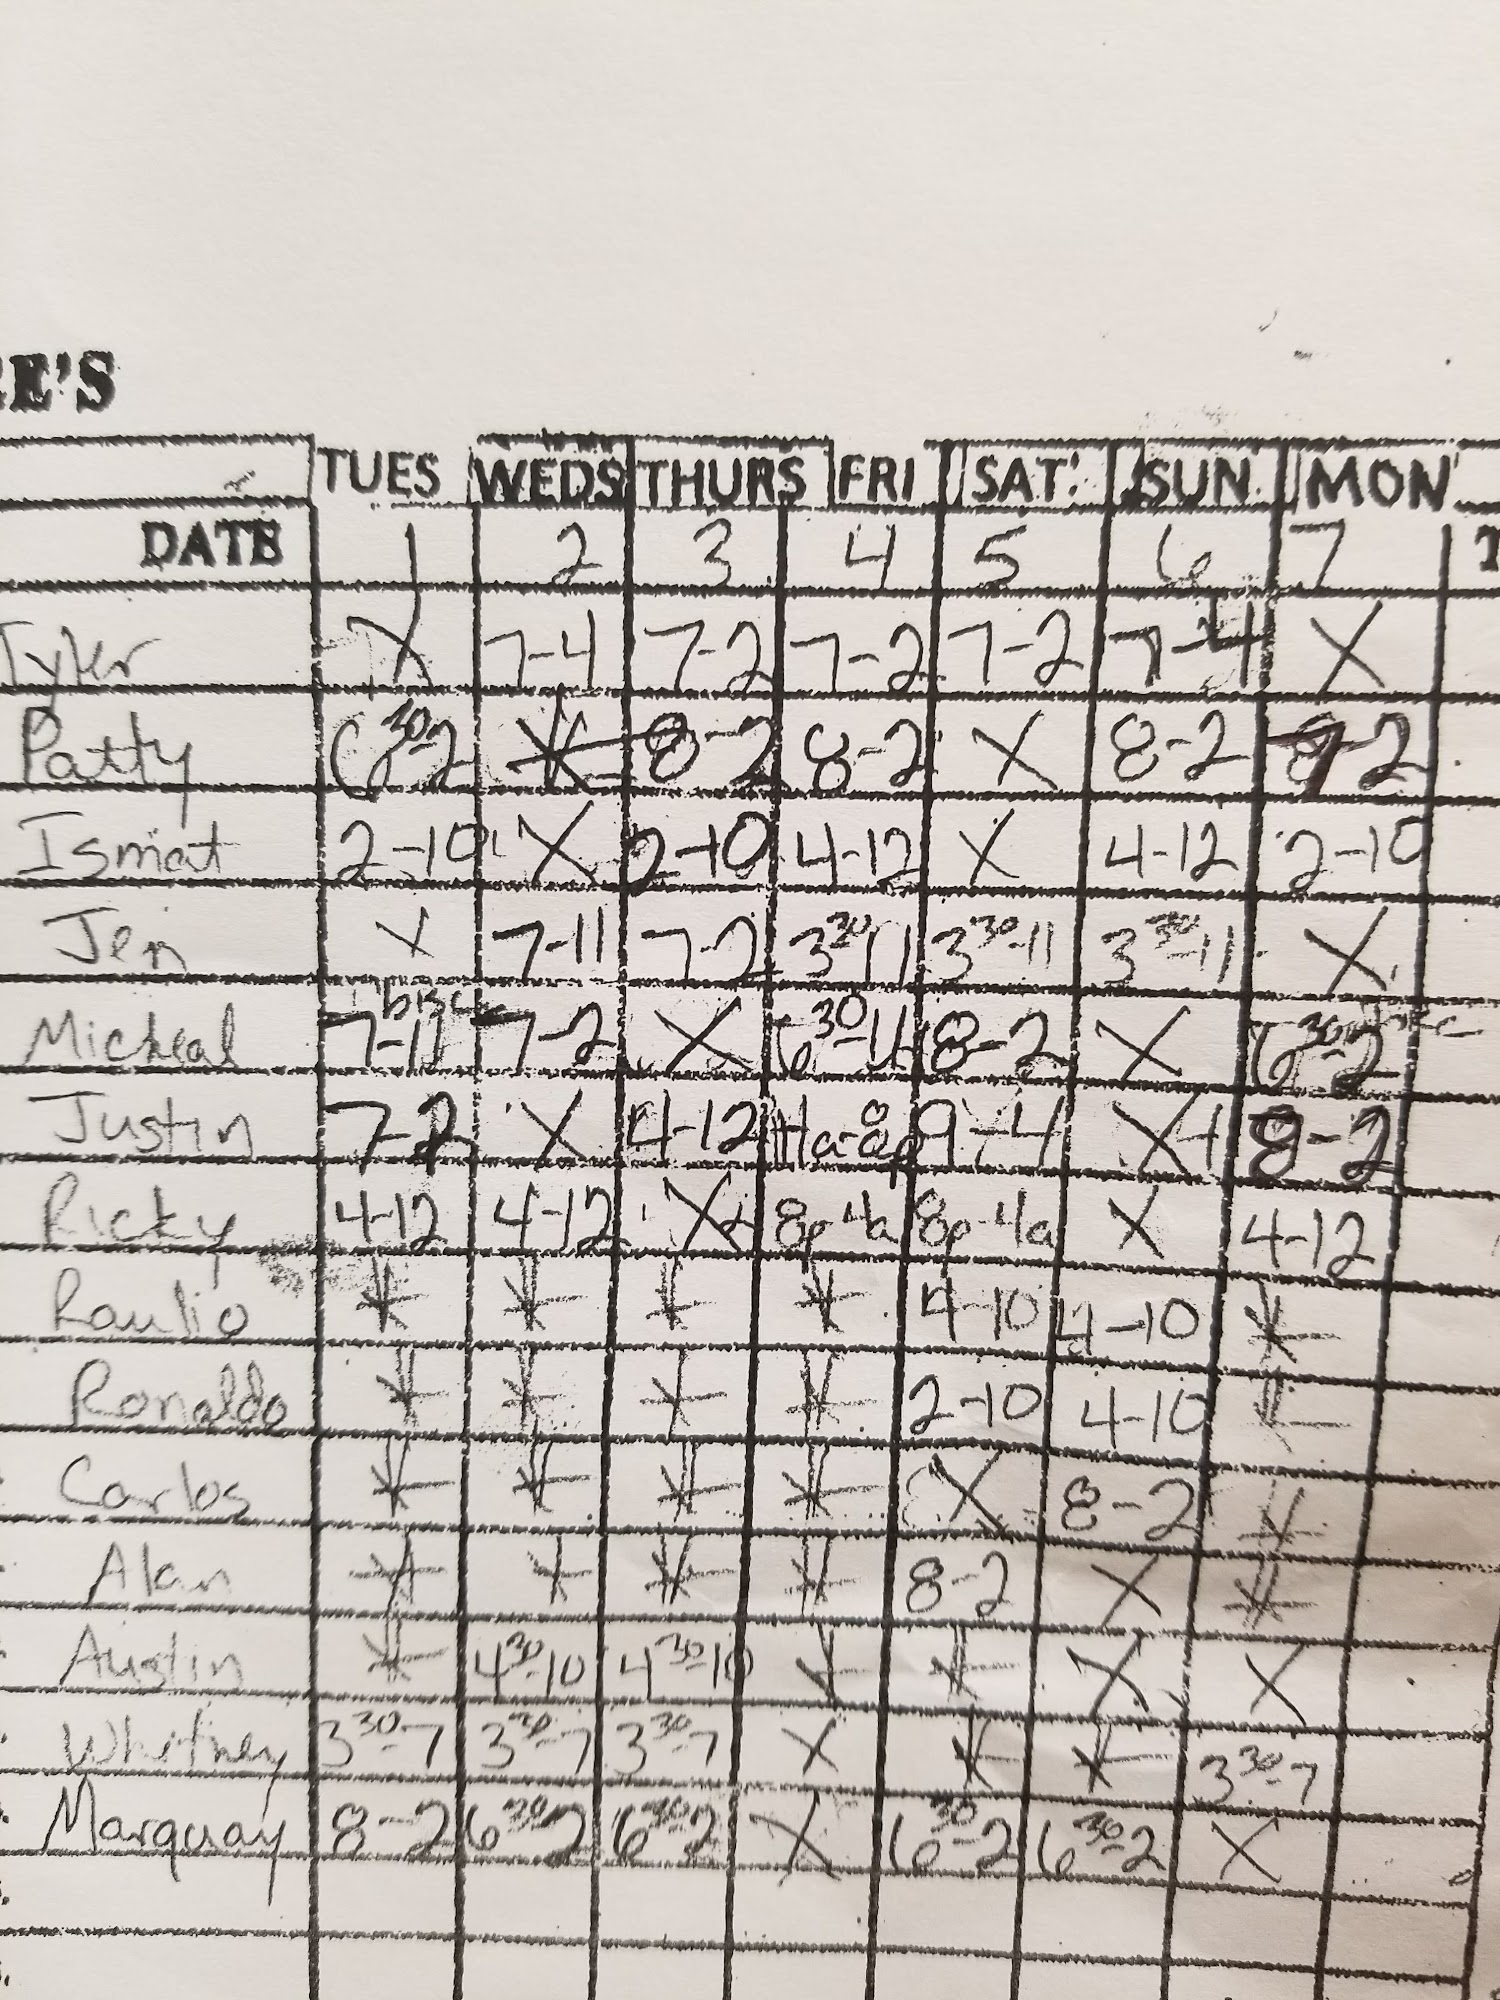 E'S
TUES WEDS THURS FRI SAT SUN MON
DATE 1 2 3 4 5 6 7
Tyler X 7-4 7-2 7-2 7-2 7-4 X
Patty 630-2 X 8-2 8-2 X 8-2 -2
Ismat 2-10 X 2-10 4-12 X 4-12 2-10
Jen X 7-11 7-2 330-11 330-11 330-11 X
Micheal 7-11 7-2 X 630-11 8-2 X 630-2
Justin 7-2 X 4-12 11a-8p 9-4 X 8-2
Ricky 4-12 4-12 X 8p-4a 8p-4a X 4-12
Raulio X X X X 4-10 4-10 X
Ronaldo X X X X 2-10 4-10 X
Carlos X X X X X 8-2 X
Alan X X X X 8-2 X X
Austin X 430-10 430-10 X X X X
Whitney 330-7 330-7 330-7 X X X 330-7
Marquay 8-2 630-2 630-2 X 630-2 630-2 X